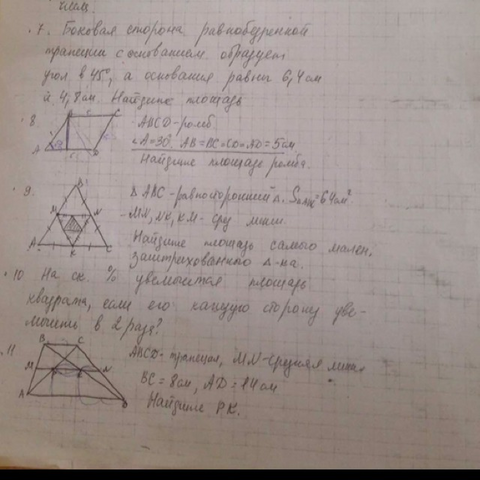 7. Боковая сторона равнобедренной
трапеции с основанием образует
угол в 45°, а основания равны 6,4 см
и 4,8 см. Найдите площадь
8
B C
A D
ABCD - ромб
∠A=30°, AB=BC=CD=AD=5см
Найдите площадь ромба.
9.
B
M N
A K C
Δ ABC - равносторонний Δ. S =64см²
MN, NK, KM - сред линии.
Найдите площадь самого мален.
заштрихованного Δ-ка.
10 На ск. % увеличится площадь
квадрата, если его каждую сторону уве-
личить в 2 раза?
11
B C
M N
A D
ABCD - трапеция, MN - средняя линия
BC = 8см, AD = 14см
Найдите PK.